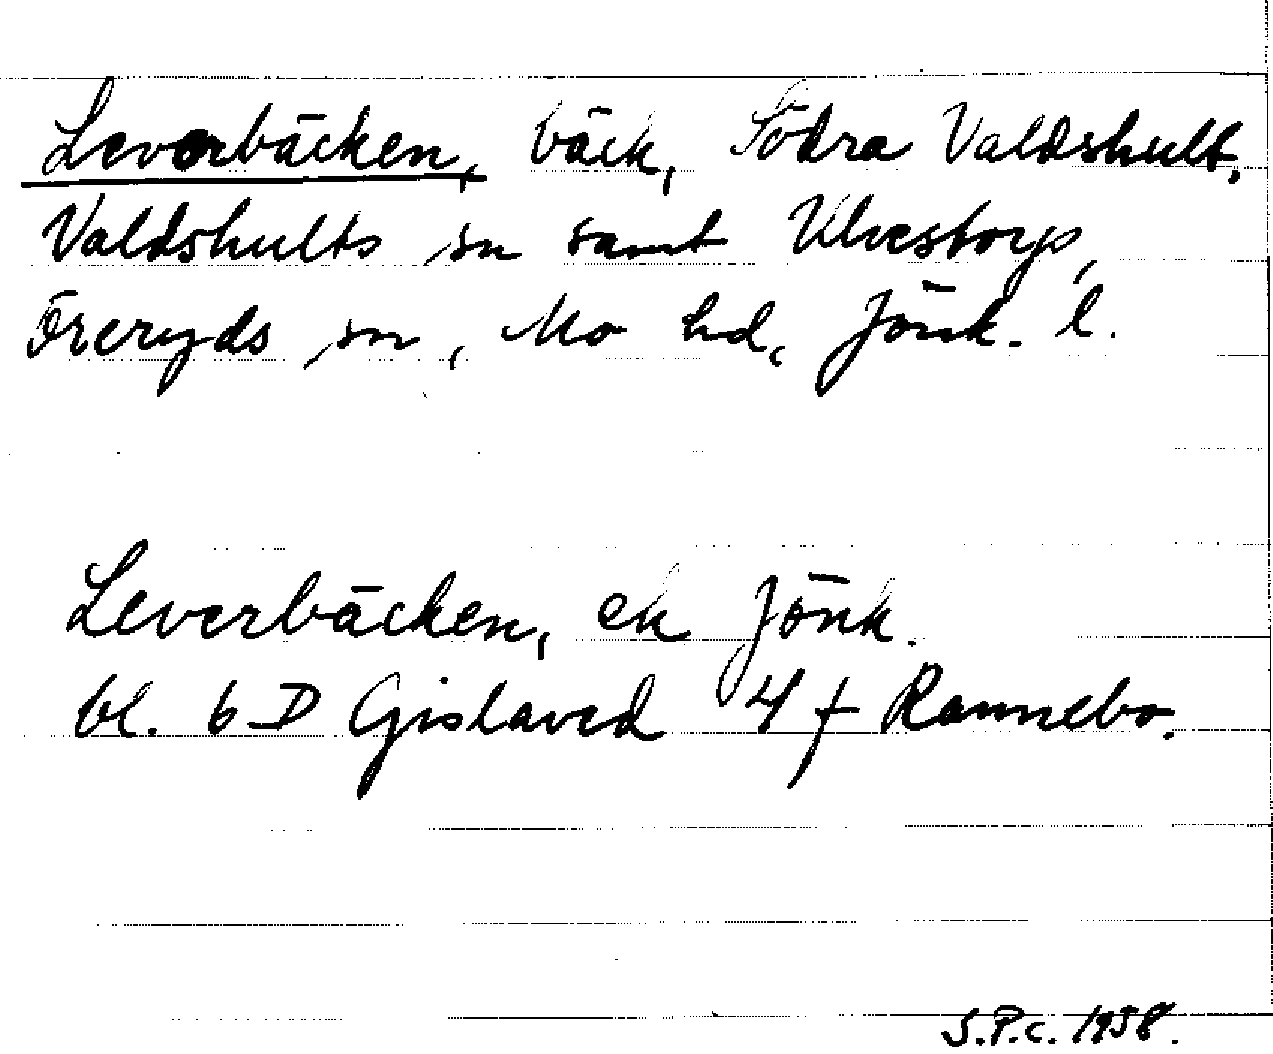 Leverbäcken, bäck, Södra Valdshult,
Valdshults sn samt Ulvestorp,
Öreryds sn, Mo hd, Jönk. l.
Leverbäcken, ek Jönk.
bl. 6 D Gislaved 4 f Rannebo.
S.P.C. 1958.